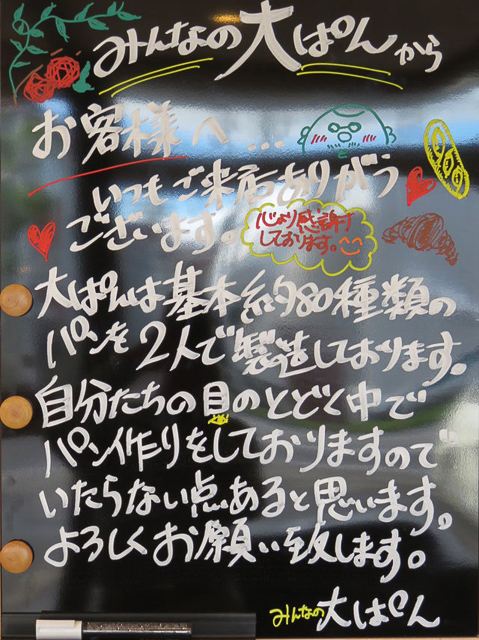 みんなの大ぱんから
お客様へ…
いつもご来店ありがとう
ございます。
心より感謝
しております。
大ぱんは基本約80種類の
パンを2人で製造しております。
自分たちの目のとどく中で
パン作りをしておりますので
いたらない点あると思います。
よろしくお願い致します。
みんなの大ぱん